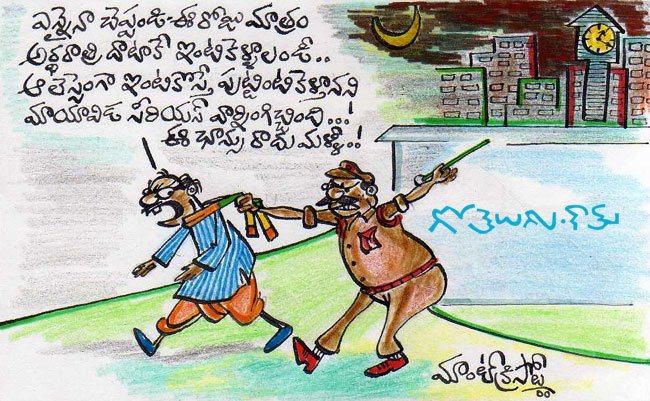 ఎన్నైనా చెప్పండి-ఈ రోజు మాత్రం
అర్ధరాత్రి దాటాకే ఇంటికెళ్ళాలండీ..
ఆలస్యంగా ఇంటికొస్తే, పుట్టింటికెళ్తానని
మాయావిడ సీరియస్ వార్నింగిచ్చింది...!
ఈ ఛాన్సు రాదు మళ్ళీ..!
గోతెలుగు.కామ్